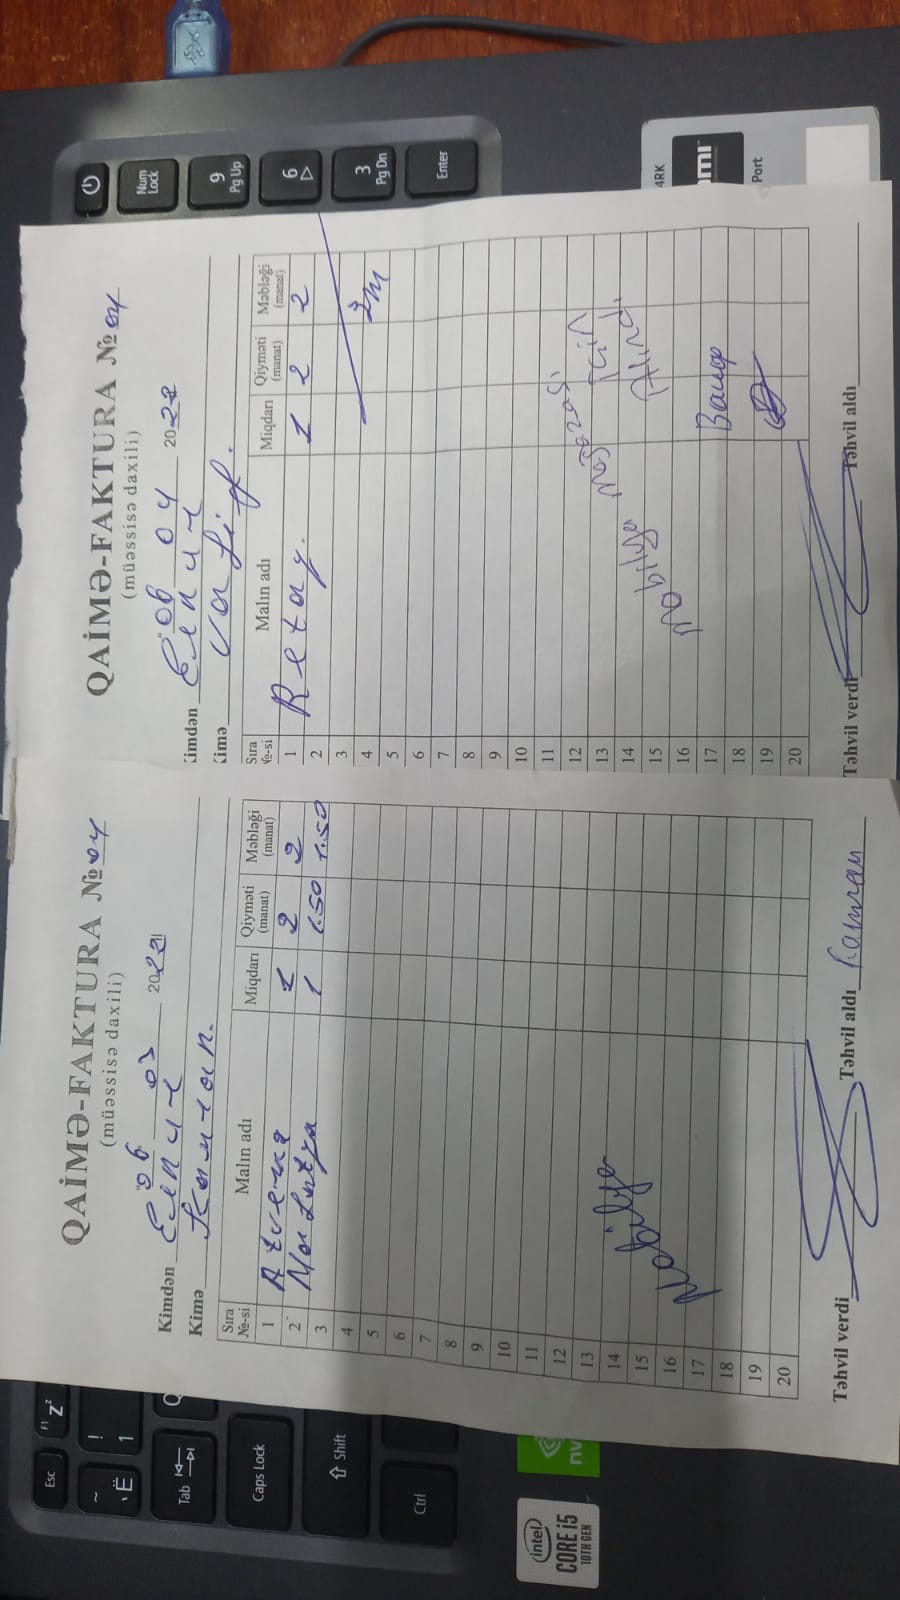 QAİMƏ-FAKTURA № 04
(müəssisə daxili)
"06" 03 2021
Kimdən
Kimə Kamran.
Sıra №-si Malın adı Miqdarı Qiyməti (manat) Məbləği (manat)
1 1 2 2
2 1 1.50 1.50
3
4
5
6
7
8
9
10
11
12
13
14
15
16
17
18
19
20
Mobilya
Təhvil verdi Təhvil aldı Kamran
QAİMƏ-FAKTURA № 04
(müəssisə daxili)
"06" 04 202
Kimdən
Kimə Vasif.
Sıra №-si Malın adı Miqdarı Qiyməti (manat) Məbləği (manat)
1 Retay. 1 2 2
2
3
4
5
6
7
8
9
10
11
12
13
14
15
16
17
18
19
20
Mobilya Mağazası
için
Alındı
Вашф
Təhvil verdi Təhvil aldı
Esc
F1
Zz
~ Ё
! 1
Tab
Q
Caps Lock
Shift
Ctrl
Num Lock
9 Pg Up
6
3 Pg Dn
Enter
intel
CORE i5
10TH GEN
nv
4RK
Port